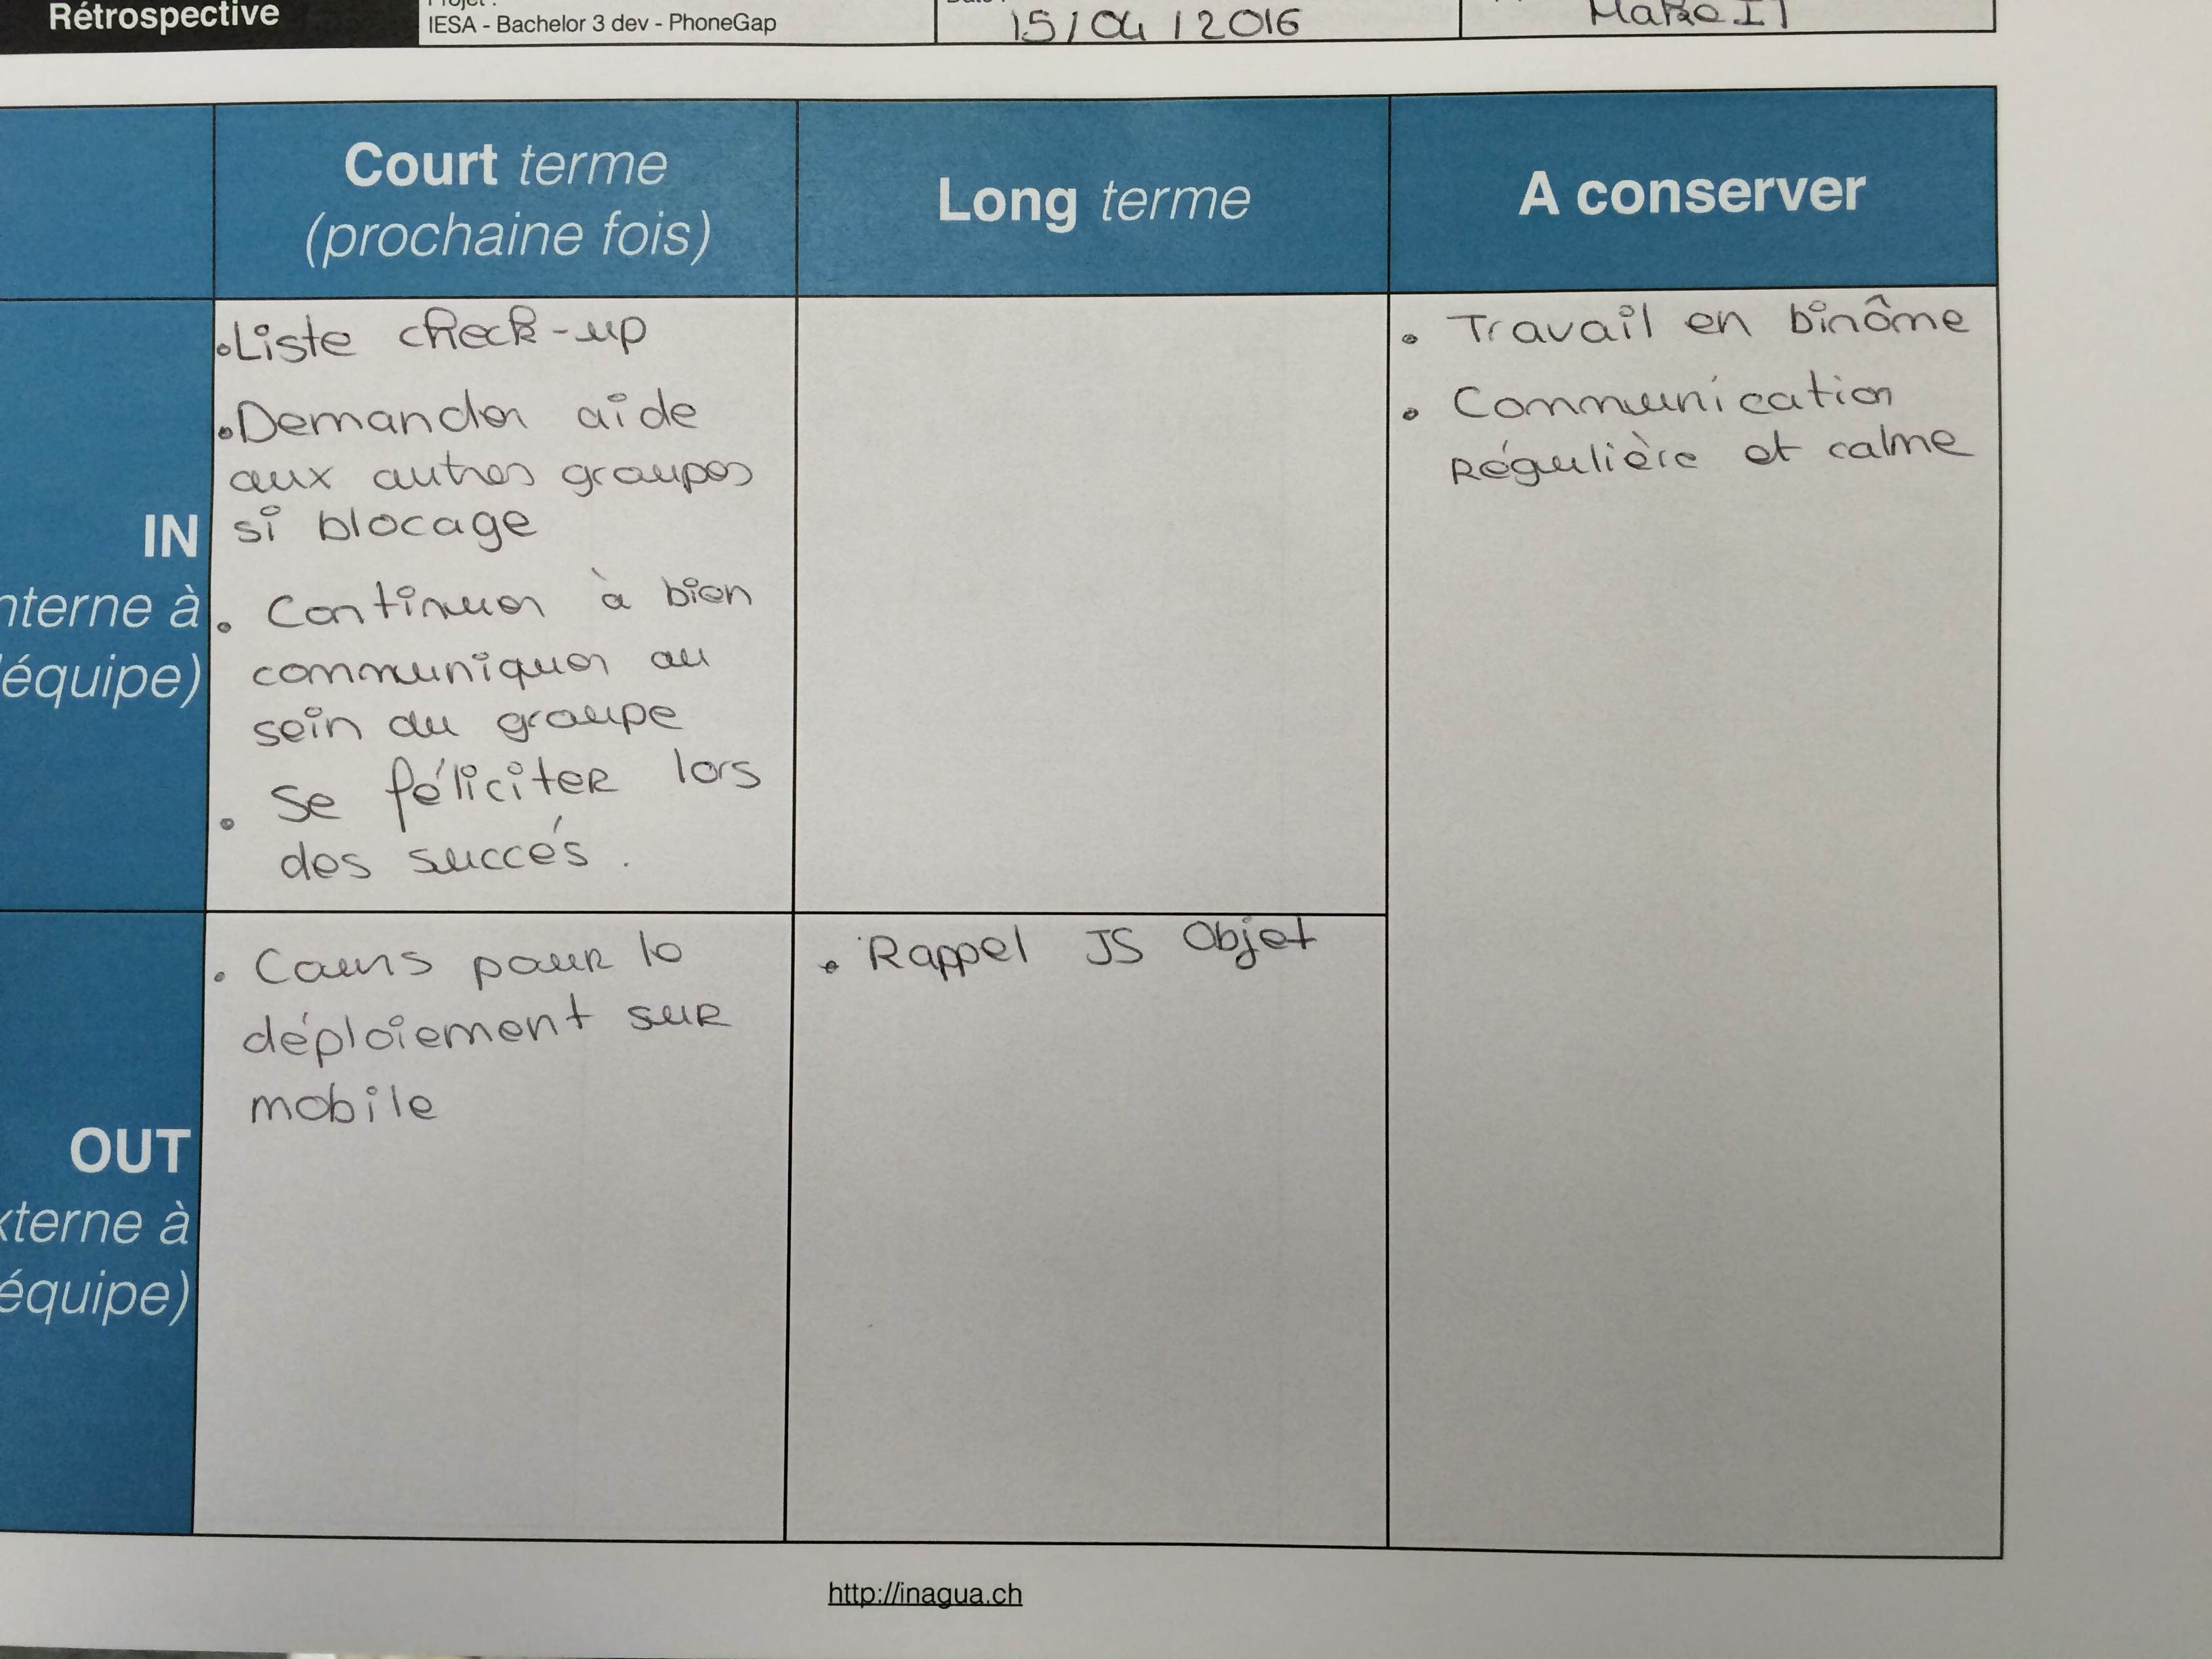 Rétrospective
IESA - Bachelor 3 dev - PhoneGap
15/04/2016
Make IT
Court terme
(prochaine fois)
Long terme
A conserver
IN
nterne à
équipe)
• Liste check-up
• Demander aide
aux autres groupes
si blocage
• Continuer à bien
communiquer au
sein du groupe
• Se féliciter lors
des succés.
• Travail en binôme
• Communication
Régulière et calme
OUT
xterne à
équipe)
• Cours pour le
déploiement sur
mobile
• Rappel JS Objet
http://inagua.ch